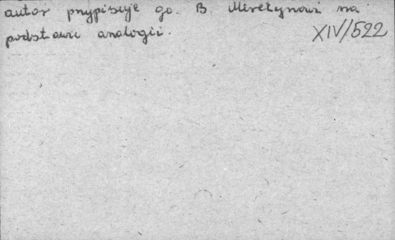 autor przypisuje go. B. Meretynowi na
podstawie analogii.
XIV/522